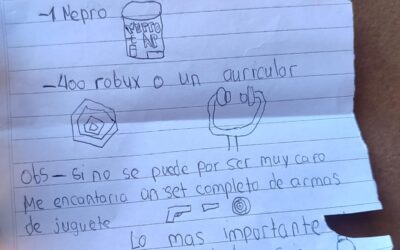 -1 Nepro
-400 robux o un auricular
obs - si no se puede por ser muy caro
Me encantaria un set completo de armas
de juguete
Lo mas importante